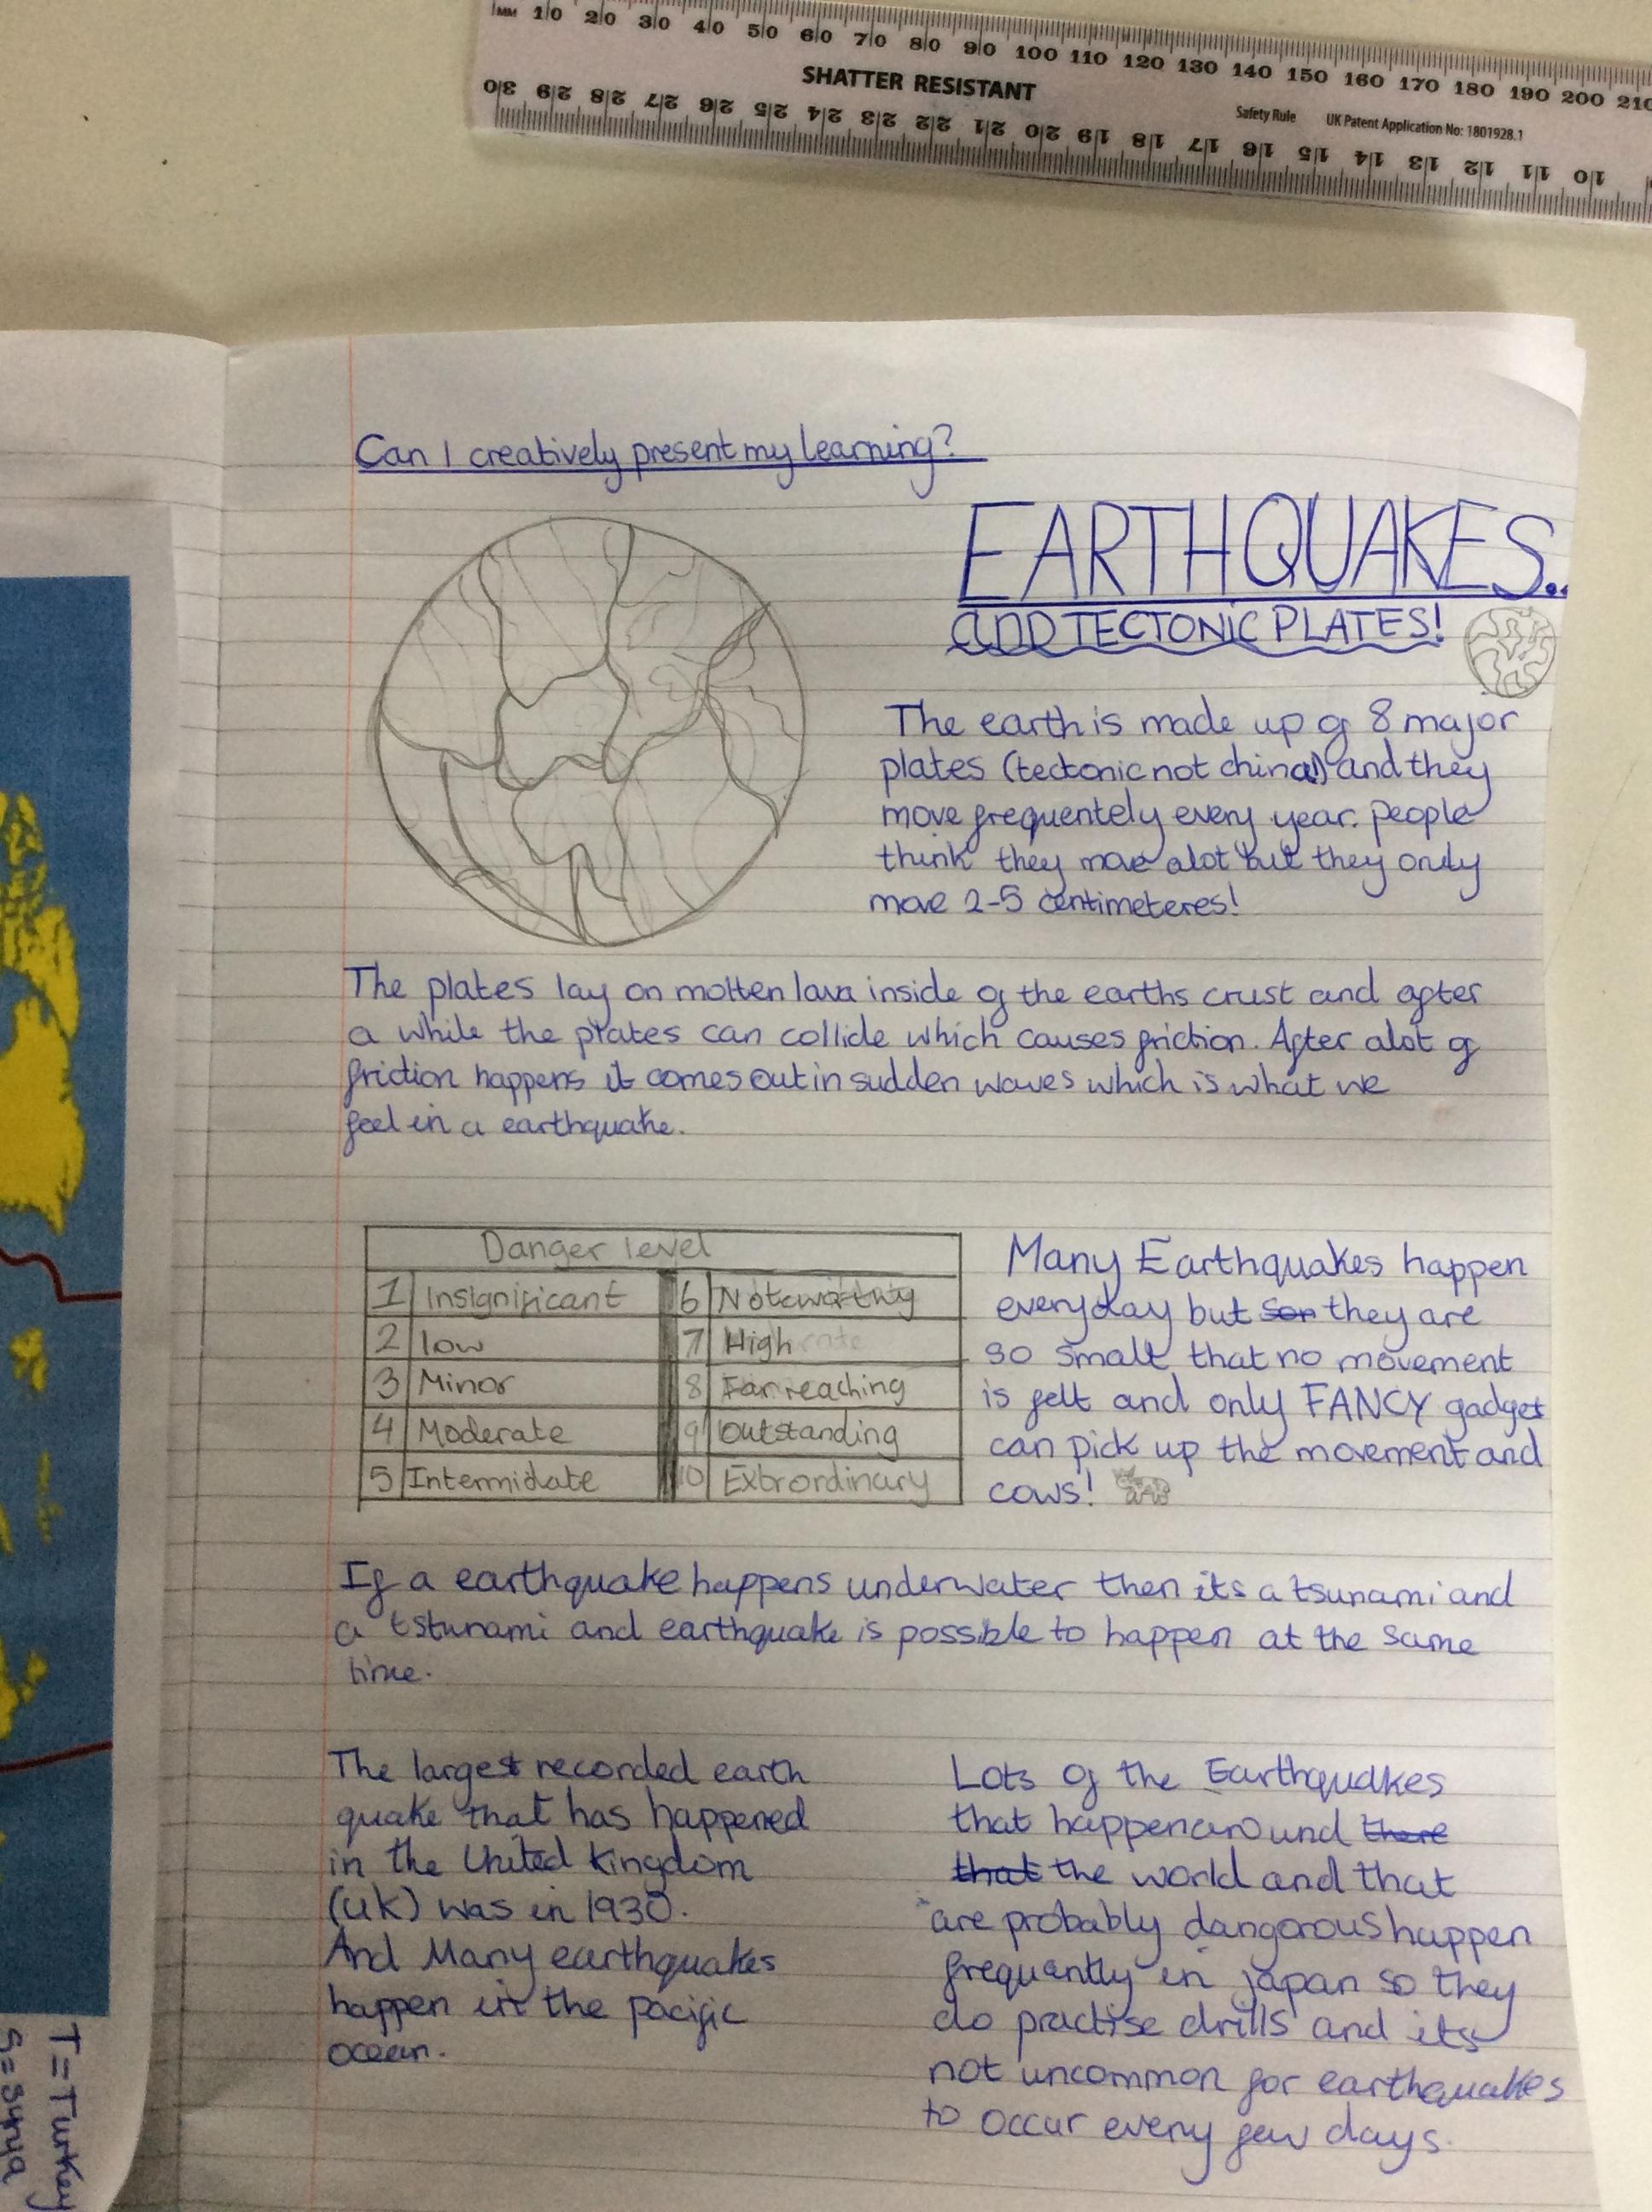 MM 10 20 30 40 50 60 70 80 90 100 110 120 130 140 150 160 170 180 190 200 210
SHATTER RESISTANT
Safety Rule UK Patent Application No: 1801928.1
30 29 28 27 26 25 24 23 22 21 20 19 18 17 16 15 14 13 12 11 10
Can I creatively present my learning?
EARTHQUAKES..
and TECTONIC PLATES!
The earth is made up of 8 major
plates (tectonic not china!) and they
move frequentely every year. people
think they move alot but they only
move 2-5 centimeteres!
The plates lay on molten lava inside of the earths crust and after
a while the plates can collide which causes friction. After alot of
friction happens it comes out in sudden waves which is what we
feel in a earthquake.
Danger level
1 Insignificant 6 Noteworthy
2 low 7 High
3 Minor 8 Far reaching
4 Moderate 9 Outstanding
5 Intermidiate 10 Extrordinary
Many Earthquakes happen
everyday but son they are
so small that no movement
is felt and only FANCY gadget
can pick up the movement and
cows!
If a earthquake happens underwater then its a tsunami and
a tstunami and earthquake is possible to happen at the same
time.
The largest recorded earth
quake that has happened
in the United Kingdom
(UK) was in 1930.
And Many earthquakes
happen in the pacific
ocean.
Lots of the Earthquakes
that happen around there
that the world and that
are probably dangorous happen
frequantly in japan so they
do practise drills and its
not uncommon for earthquakes
to occur every few days.
T=Turkey
S=Syria